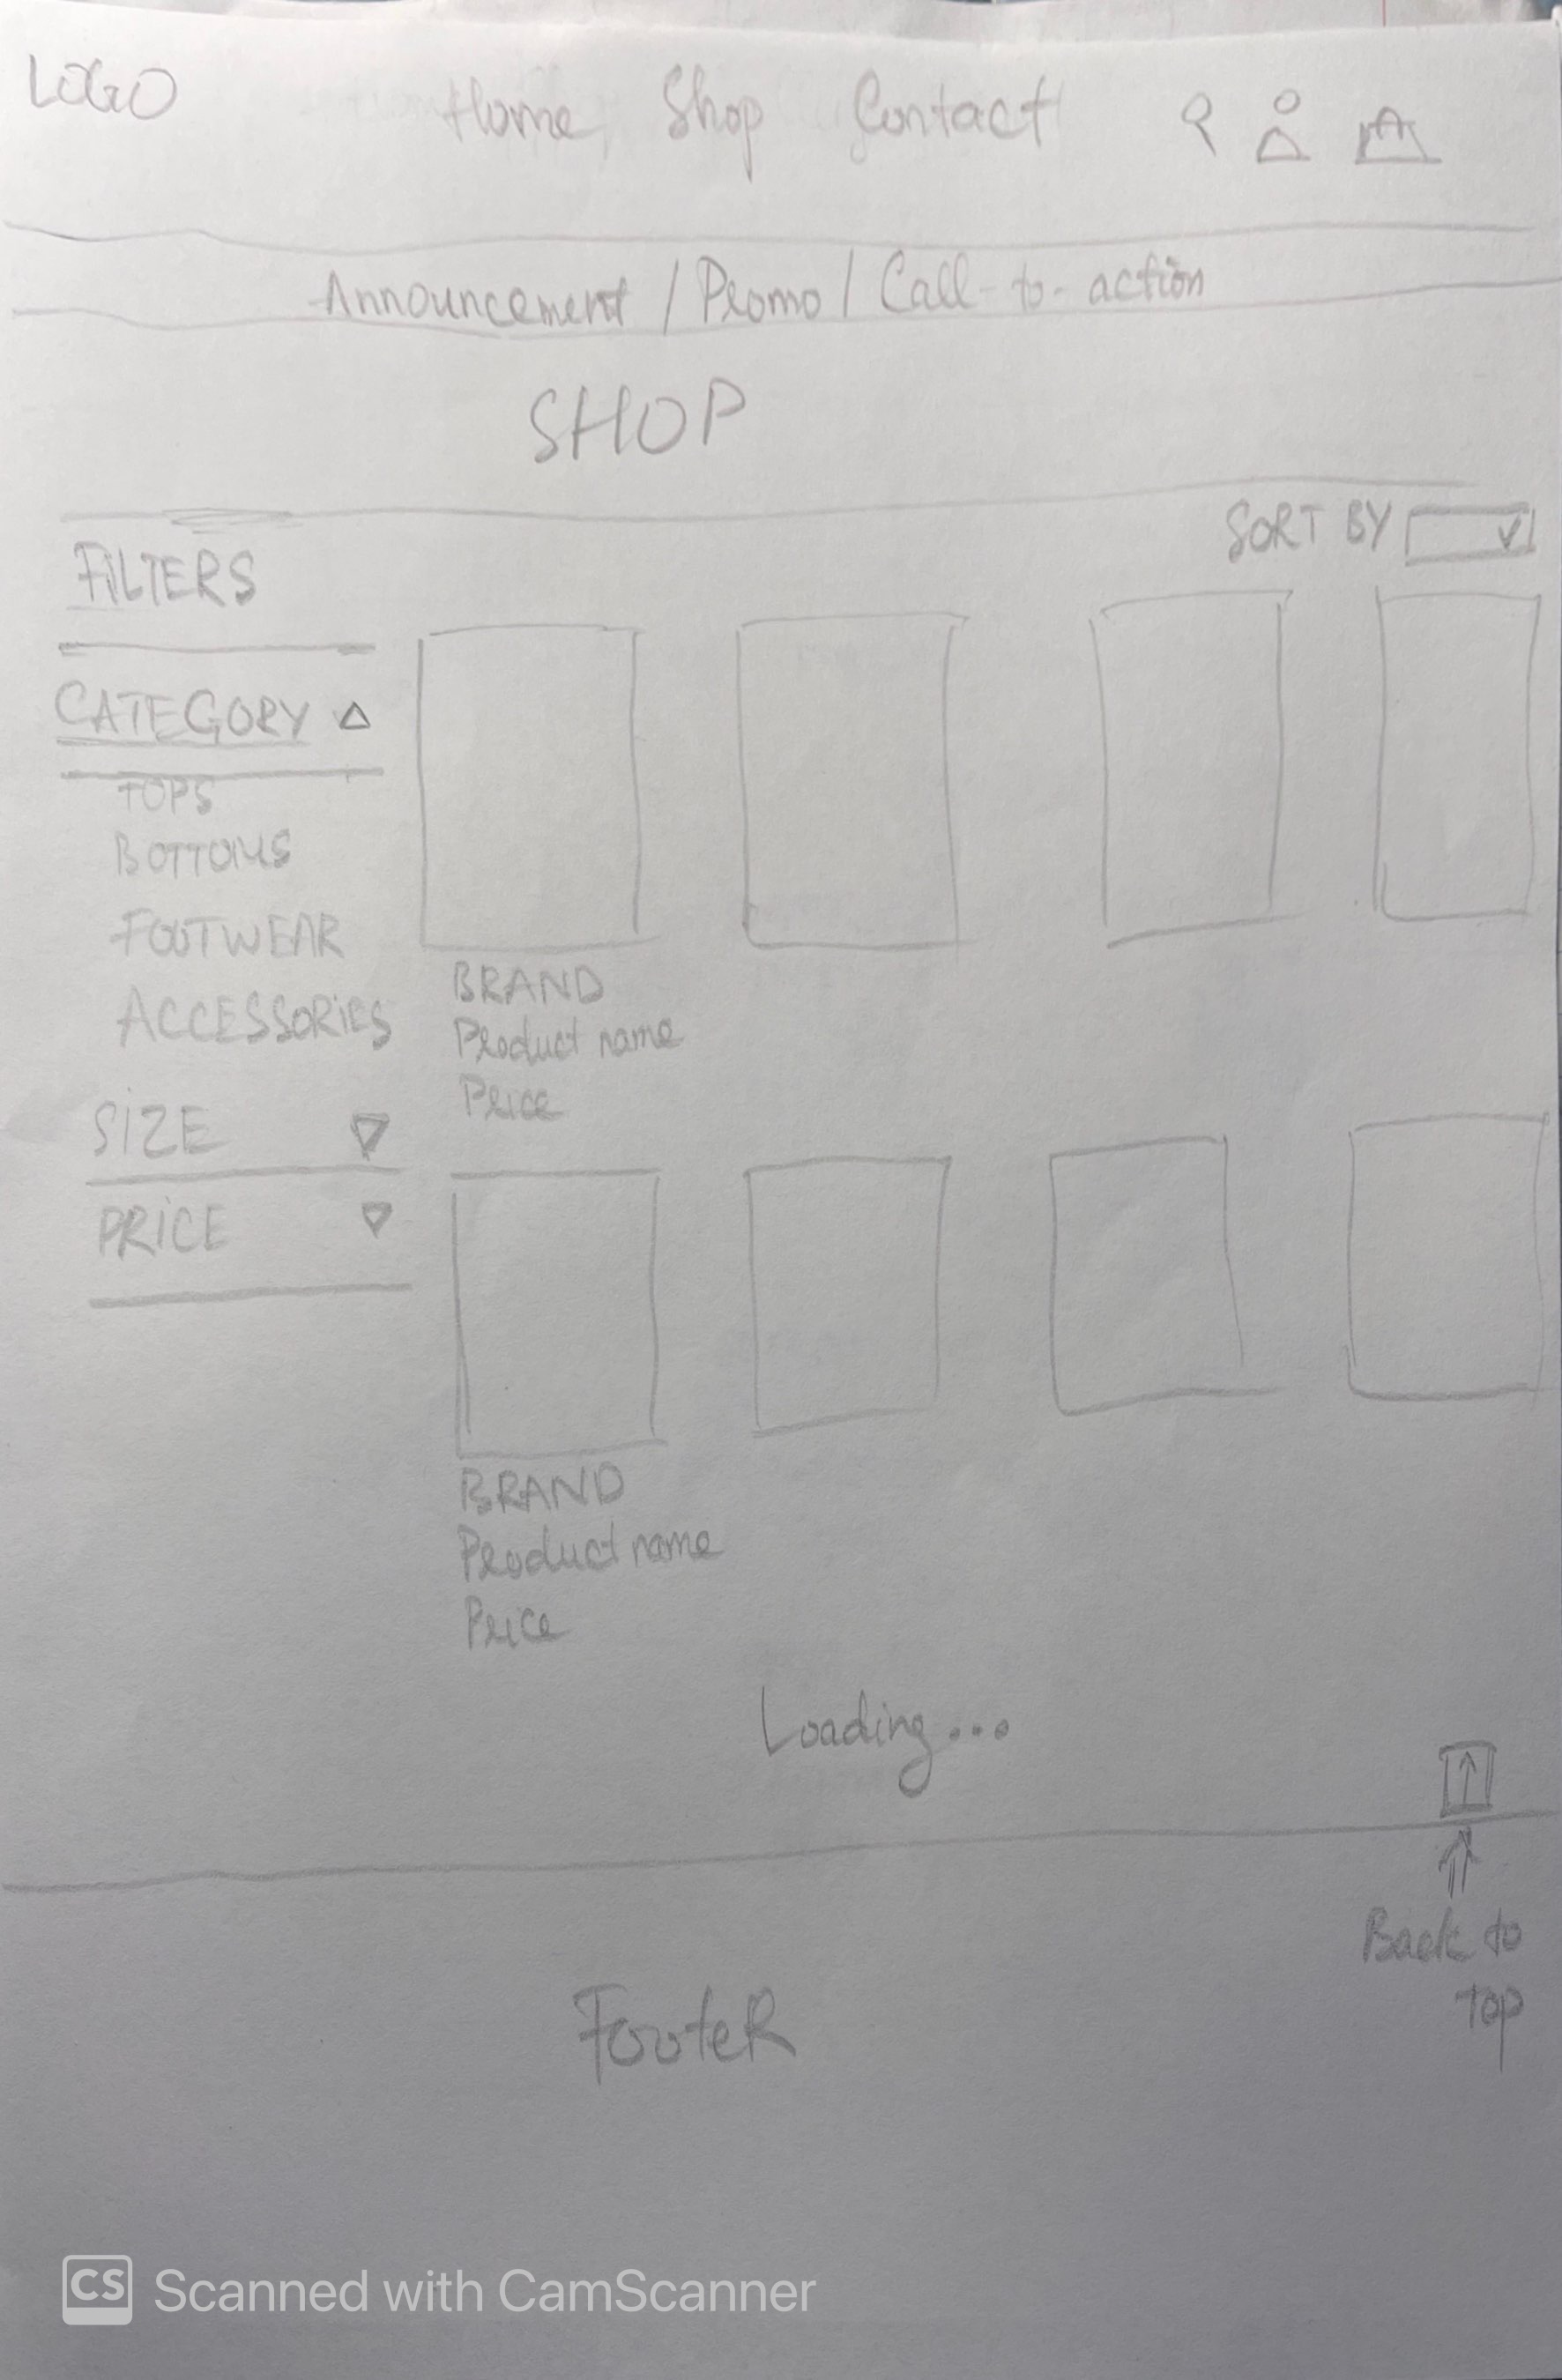 LOGO Home Shop Contact
Announcement / Promo / Call-to-action
SHOP
SORT BY
FILTERS
CATEGORY
TOPS
BOTTOMS
FOOTWEAR
ACCESSORIES
SIZE
PRICE
BRAND
Product name
Price
BRAND
Product name
Price
Loading...
Back to
Top
FooteR
CS Scanned with CamScanner